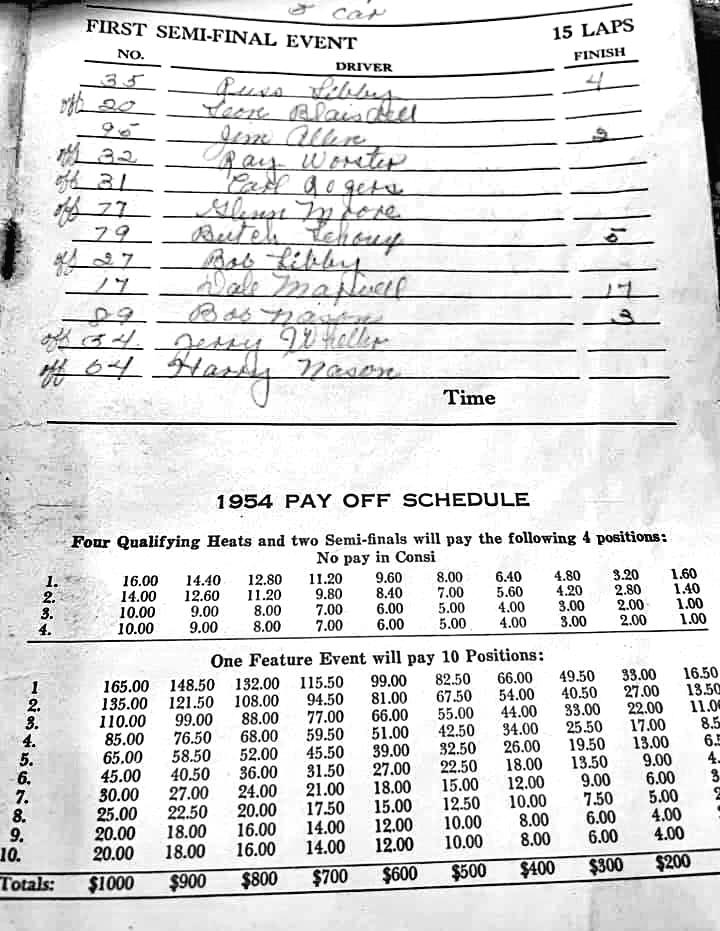 5 car
FIRST SEMI-FINAL EVENT 15 LAPS
NO. DRIVER FINISH
35 Russ Libby 4
off 20 Leon Blaisdell
95 Jim Allen 2
off 32 Ray Worster
off 31 Earl Rogers
off 77 Glenn Moore
79 Butch 5
off 27 Bob Libby
17 Dale Maxwell 17
89 Bob Nason 3
off 34 Jerry Wheeler
off 64 Harry Nason
Time
1954 PAY OFF SCHEDULE
Four Qualifying Heats and two Semi-finals will pay the following 4 positions:
No pay in Consi
1. 16.00 14.40 12.80 11.20 9.60 8.00 6.40 4.80 3.20 1.60
2. 14.00 12.60 11.20 9.80 8.40 7.00 5.60 4.20 2.80 1.40
3. 10.00 9.00 8.00 7.00 6.00 5.00 4.00 3.00 2.00 1.00
4. 10.00 9.00 8.00 7.00 6.00 5.00 4.00 3.00 2.00 1.00
One Feature Event will pay 10 Positions:
1 165.00 148.50 132.00 115.50 99.00 82.50 66.00 49.50 33.00 16.50
2. 135.00 121.50 108.00 94.50 81.00 67.50 54.00 40.50 27.00 13.50
3. 110.00 99.00 88.00 77.00 66.00 55.00 44.00 33.00 22.00 11.0
4. 85.00 76.50 68.00 59.50 51.00 42.50 34.00 25.50 17.00 8.5
5. 65.00 58.50 52.00 45.50 39.00 32.50 26.00 19.50 13.00 6.
6. 45.00 40.50 36.00 31.50 27.00 22.50 18.00 13.50 9.00 4.
7. 30.00 27.00 24.00 21.00 18.00 15.00 12.00 9.00 6.00 3
8. 25.00 22.50 20.00 17.50 15.00 12.50 10.00 7.50 5.00
9. 20.00 18.00 16.00 14.00 12.00 10.00 8.00 6.00 4.00
10. 20.00 18.00 16.00 14.00 12.00 10.00 8.00 6.00 4.00
Totals: $1000 $900 $800 $700 $600 $500 $400 $300 $200